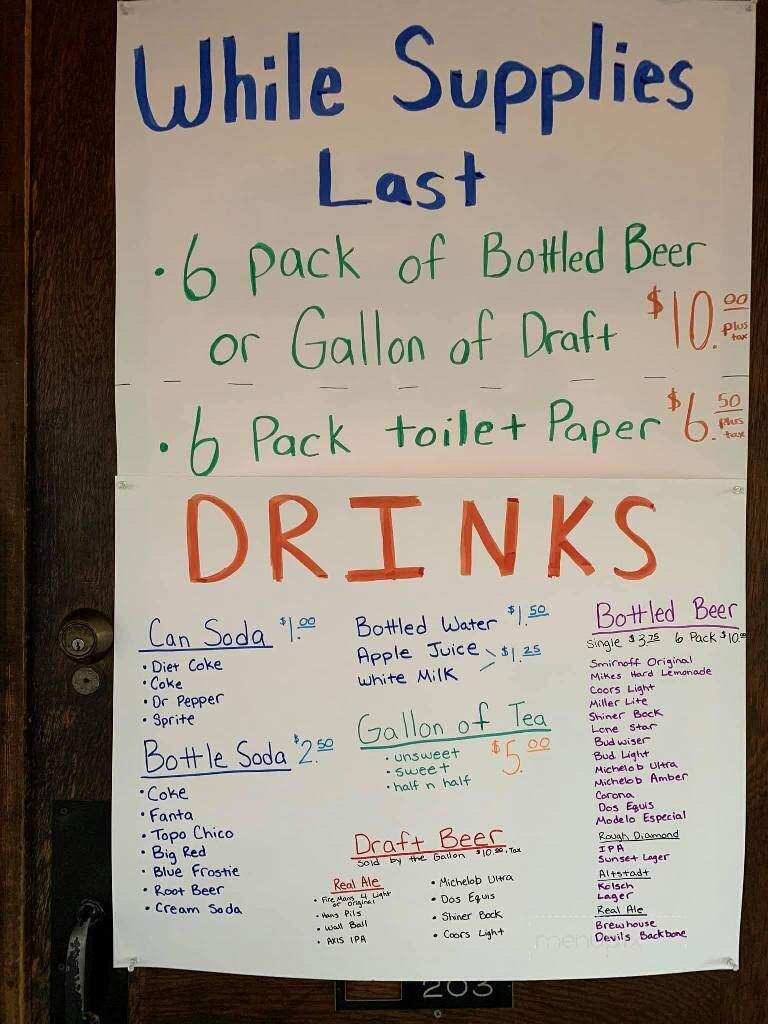 While Supplies
Last
• 6 Pack of Bottled Beer
or Gallon of Draft $10.00 plus tax
• 6 Pack toilet Paper $6.50 plus tax
DRINKS
Can Soda $1.00
• Diet Coke
• Coke
• Dr Pepper
• Sprite
Bottle Soda $2.50
• Coke
• Fanta
• Topo Chico
• Big Red
• Blue Frostie
• Root Beer
• Cream Soda
Bottled Water $1.50
Apple Juice
White Milk $1.25
Gallon of Tea
• unsweet
• sweet
• half n half
$5.00
Draft Beer
Sold by the Gallon $10.00 + Tax
Real Ale
• Fire Mans 4 Light
or Original
• Hans Pils
• Wall Ball
• AXIS IPA
• Michelob Ultra
• Dos Equis
• Shiner Bock
• Coors Light
Bottled Beer
Single $3.25 6 Pack $10.00
Smirnoff Original
Mikes Hard Lemonade
Coors Light
Miller Lite
Shiner Bock
Lone Star
Budwiser
Bud Light
Michelob Ultra
Michelob Amber
Corona
Dos Equis
Modelo Especial
Rough Diamond
IPA
Sunset Lager
Altstadt
Kolsch
Lager
Real Ale
Brewhouse
Devils Backbone
203